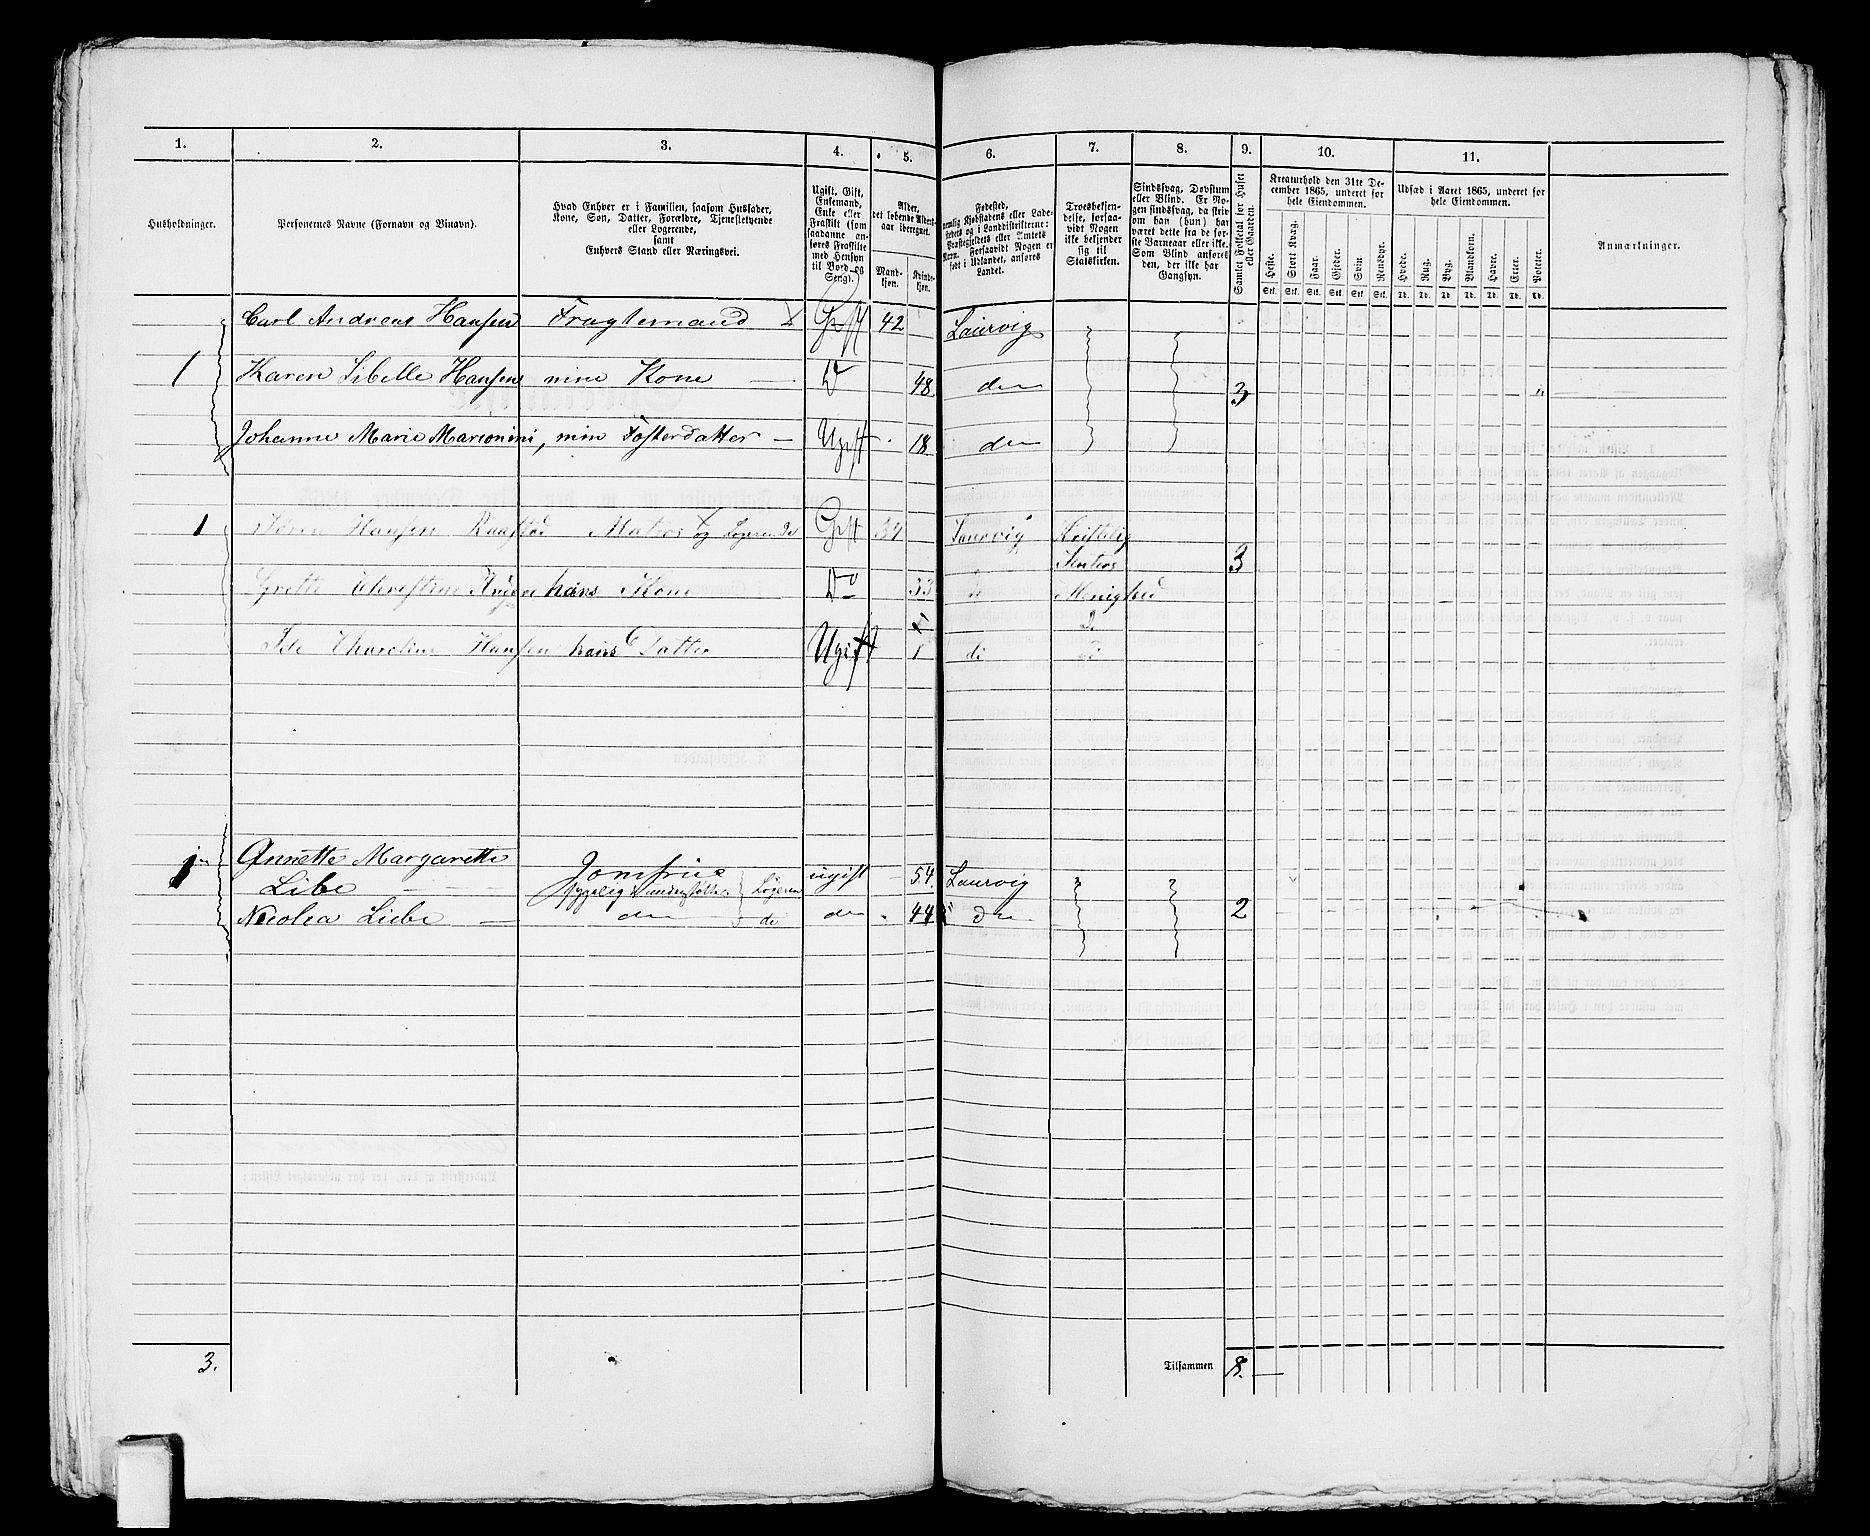 1.
2.
3.
4.
5.
6.
7.
8.
9.
10.
11.
Husholdninger.
Personernes Navne (Fornavn og Tilnavn).
Hvad Enhver er i Familien, saasom Husfader,
Kone, Søn, Datter, Forældre, Tjenestetyende
eller Logerende,
samt
Enhvers Stand eller Næringsvei.
Ugift, Gift,
Enkemand,
Enke eller
Fraskilt (som
saadanne an-
føres Fraskilte
med Hensyn
til Bord og
Seng).
Alder,
det løbende Alders-
aar iberegnet.
Mand-
kjøn.
Kvinde-
kjøn.
Fødested,
nemlig Kjøbstadens eller Lade-
stedets og i Landdistrikterne:
Præstegjeldets eller Sognets
Navn. Forsaavidt Nogen er
født i Udlandet, anføres
Landet.
Troesbekjen-
delse, forsaa-
vidt Nogen
ikke bekjender
sig til
Statskirken.
Sindssvag, Døvstum
eller Blind. Er No-
gen sindssvag, da skriv
om han (hun) har
været dette fra de før-
ste Barneaar eller ikke.
Som Blind anføres
den, der ikke har
Gangsyn.
Samlet Folketal for Huset
eller Gaarden.
Kreaturhold den 31te De-
cember 1865, underet for
hele Eiendommen.
Heste.
Stort Kvæg.
Faar.
Gjeder.
Svin.
Rensdyr.
Stk. Stk. Stk. Stk. Stk. Stk.
Udsæd i Aaret 1865, underet for
hele Eiendommen.
Hvede.
Rug.
Byg.
Blandkorn.
Havre.
Erter.
Poteter.
Td. Td. Td. Td. Td. Td. Td.
Anmærkninger.
Carl Andreas Hansen Fragtemand X Gift 42 Laurvig
1 Karen Sibelle Hansen mine Kone — Do 48 do 3
Johanne Marie , min Fosterdatter — Ugift 18 do
1 Søren Hansen Matros og Logerende Gift 34 Laurvig Kristelig
3
Grette Christine hans Kone Do 33 Menighed
Hansen hans Datter Ugift 1 do
1 Annette Margarette Jomfrue ugift 54 Laurvig
Libe — sygelig Logeren
Nicolea Liebe — do do do 44 do 2
3.
Tilsammen 8.